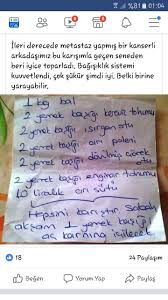 %81 01:04
İleri derecede metastaz yapmış bir kanserli
arkadaşımız bu karışımla geçen seneden
beri iyice toparladı, Bağışıklık sistemi
kuvvetlendi, çok şükür şimdi iyi. Belki birine
yarayabilir.
1 kg bal
2 yemek kaşığı tohumu
2 yemek kaşığı ısırgan otu
2 yemek kaşığı arı poleni
2 yemek kaşığı dövülmüş çörek
otu
2 yemek kaşığı enginar tohumu
10 liralık arı sütü
Hepsini karıştır Sabah
akşam 1 yemek kaşığı
aç karnına içilecek
18
24 Paylaşım
Beğen
Yorum Yap
Paylaş